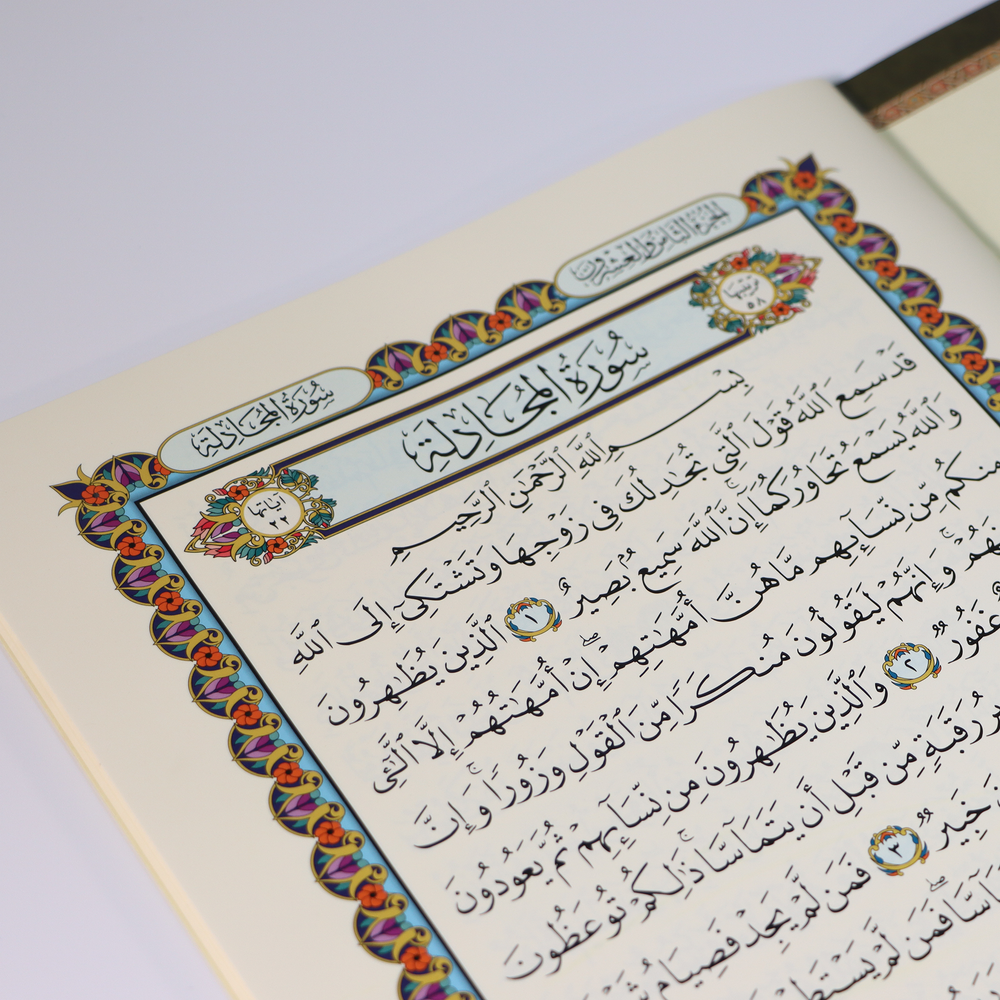 الجزء الثامن والعشرون
سورة المجادلة
ترتيبها ٥٨
سُورَةُ المُجَادلَة
آياتها ٢٢
بِسْمِ اللَّهِ الرَّحْمَٰنِ الرَّحِيمِ
قَدْ سَمِعَ ٱللَّهُ قَوْلَ ٱلَّتِى تُجَٰدِلُكَ فِى زَوْجِهَا وَتَشْتَكِىٓ إِلَى ٱللَّهِ
وَٱللَّهُ يَسْمَعُ تَحَاوُرَكُمَآ إِنَّ ٱللَّهَ سَمِيعٌۢ بَصِيرٌ ١ ٱلَّذِينَ يُظَٰهِرُونَ
مِنكُم مِّن نِّسَآئِهِم مَّا هُنَّ أُمَّهَٰتِهِمْ إِنْ أُمَّهَٰتُهُمْ إِلَّا ٱلَّٰٓـِٔى
وَإِنَّهُمْ لَيَقُولُونَ مُنكَرًا مِّنَ ٱلْقَوْلِ وَزُورًا وَإِنَّ
غَفُورٌ ٢ وَٱلَّذِينَ يُظَٰهِرُونَ مِن نِّسَآئِهِمْ ثُمَّ يَعُودُونَ
رَقَبَةٍ مِّن قَبْلِ أَن يَتَمَآسَّا ذَٰلِكُمْ تُوعَظُونَ
خَبِيرٌ ٣ فَمَن لَّمْ يَجِدْ فَصِيَامُ
فَمَن لَّمْ يَسْتَطِعْ